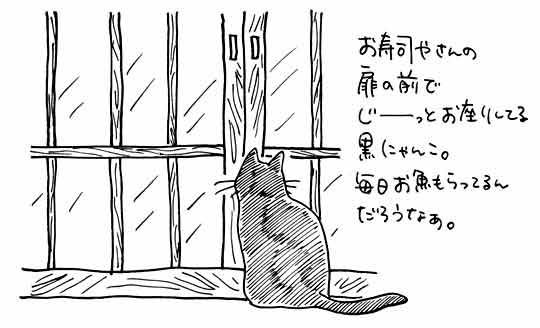 お寿司やさんの
扉の前で
じーーっとお座りしてる
黒にゃんこ。
毎日お魚もらってるん
だろうなぁ。